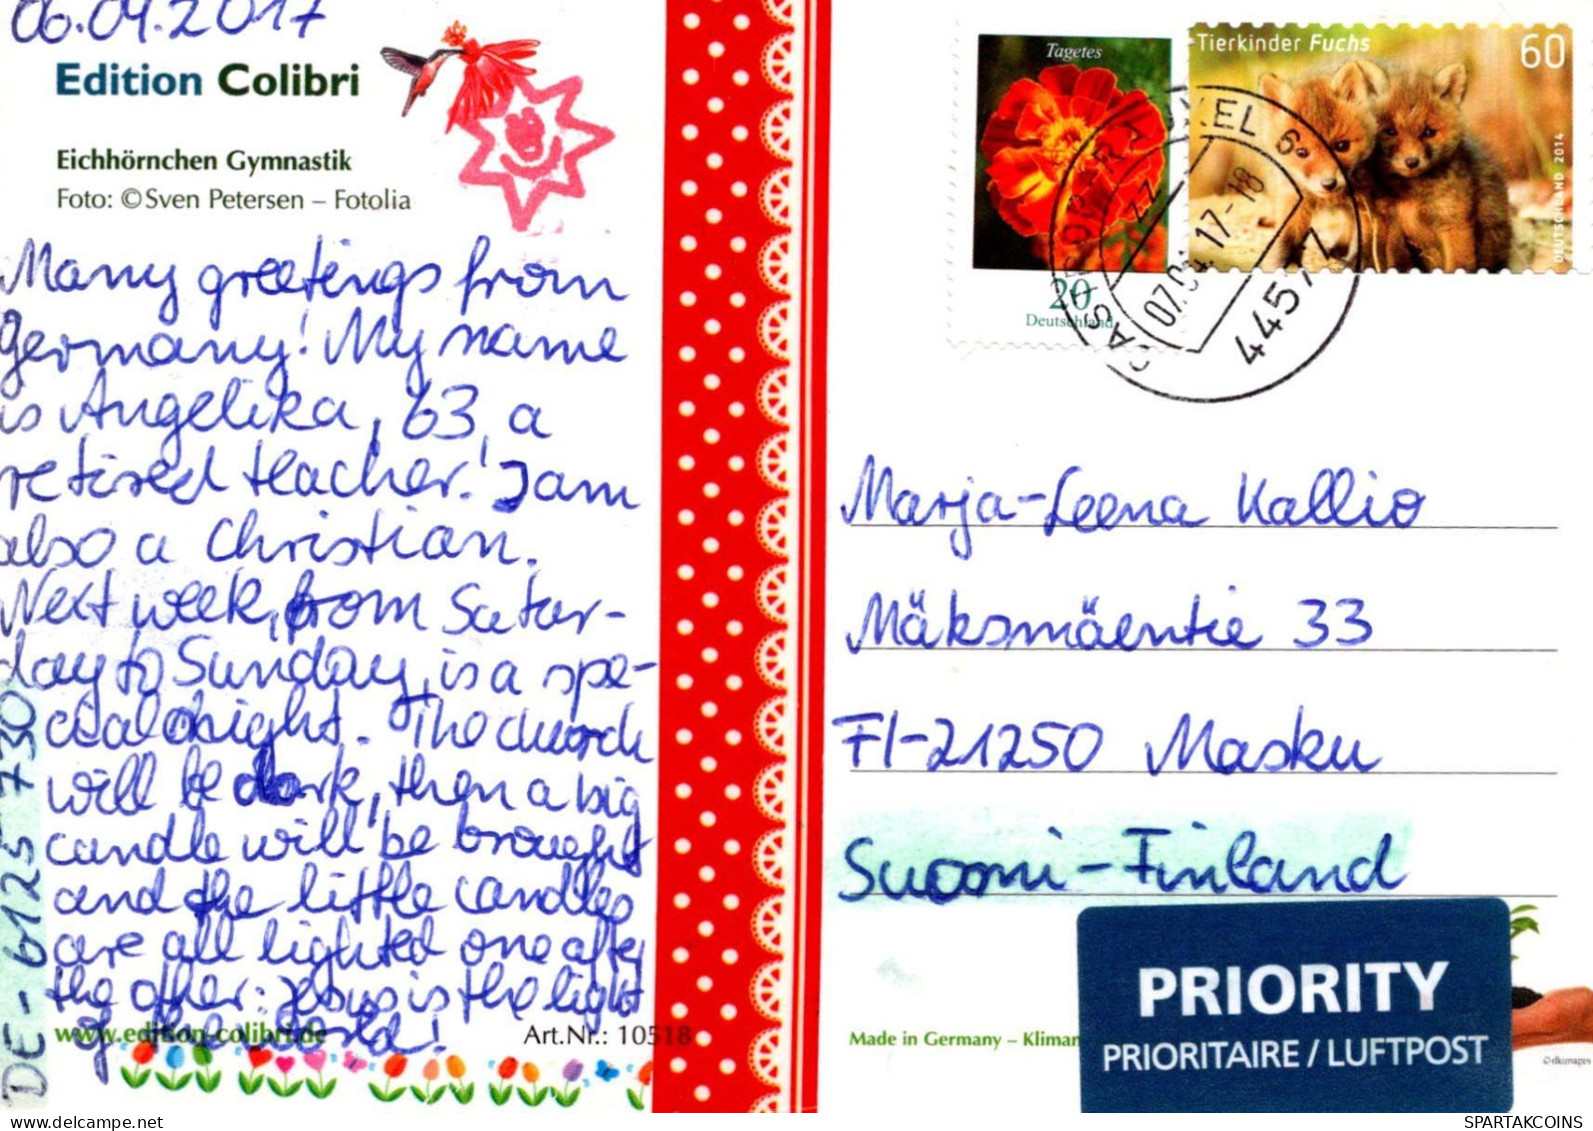 06.04.2017
Edition Colibri
Eichhörnchen Gymnastik
Foto: ©Sven Petersen – Fotolia
Many greetings from
Germany! My name
is Angelika, 63, a
retired teacher. I am
also a Christian.
Next week, from Satur-
day to Sunday, is a spe-
cial night. The church
will be dark, then a big
candle will be brought
and the little candles
are all lighted one after
the other: Jesus is the light
of the world!
DE-6125730
www.edition-colibri.de
Art.Nr.: 10518
Tagetes
20
Deutschland
Tierkinder Fuchs
60
DEUTSCHLAND 2014
CASTROP-RAUXEL
07.04.17-18
44577
Marja-Leena Kallio
Mäksmäentie 33
FI-21250 Masku
Suomi-Finland
Made in Germany –
PRIORITY
PRIORITAIRE / LUFTPOST
delcampe.net
SPARTAKCOINS